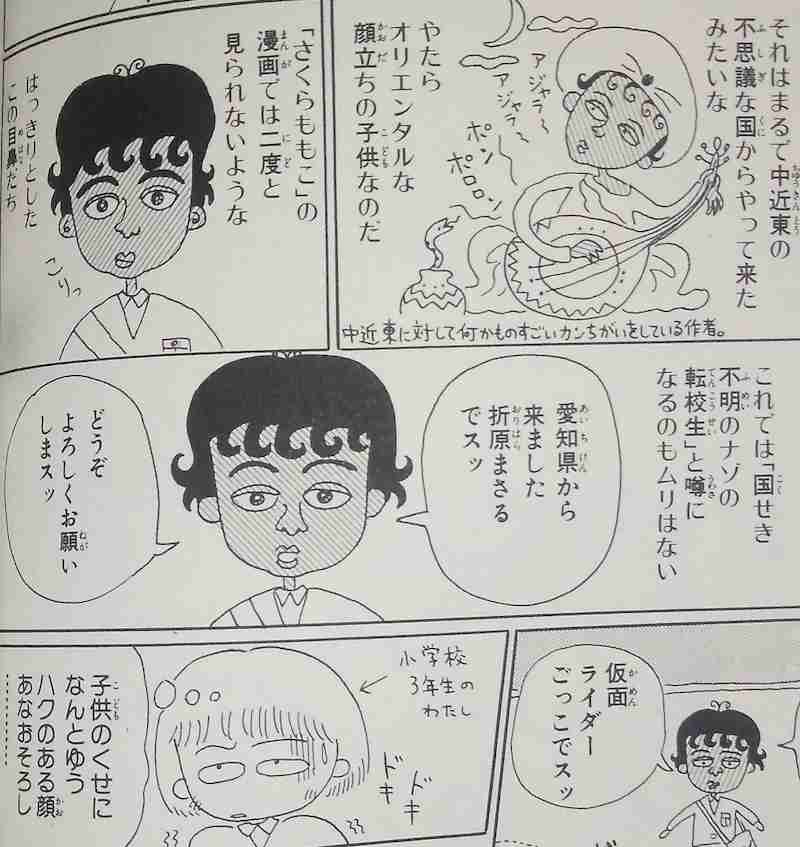 それはまるで中近東の
不思議な国からやって来た
みたいな
アジャラ〜
アジャラ〜
ポン
ポロロン
やたら
オリエンタルな
顔立ちの子供なのだ
中近東に対して何かものすごいカンちがいをしている作者。
「さくらももこ」の
漫画では二度と
見られないような
はっきりとした
この目鼻だち
こりっ
これでは「国せき
不明のナゾの
転校生」と噂に
なるのもムリはない
愛知県から
来ました
折原まさる
でスッ
どうぞ
よろしくお願い
しまスッ
仮面
ライダー
ごっこでスッ
小学校
3年生の
わたし
ドキ
ドキ
子供のくせに
なんとゆう
ハクのある顔
あなおそろし
…………